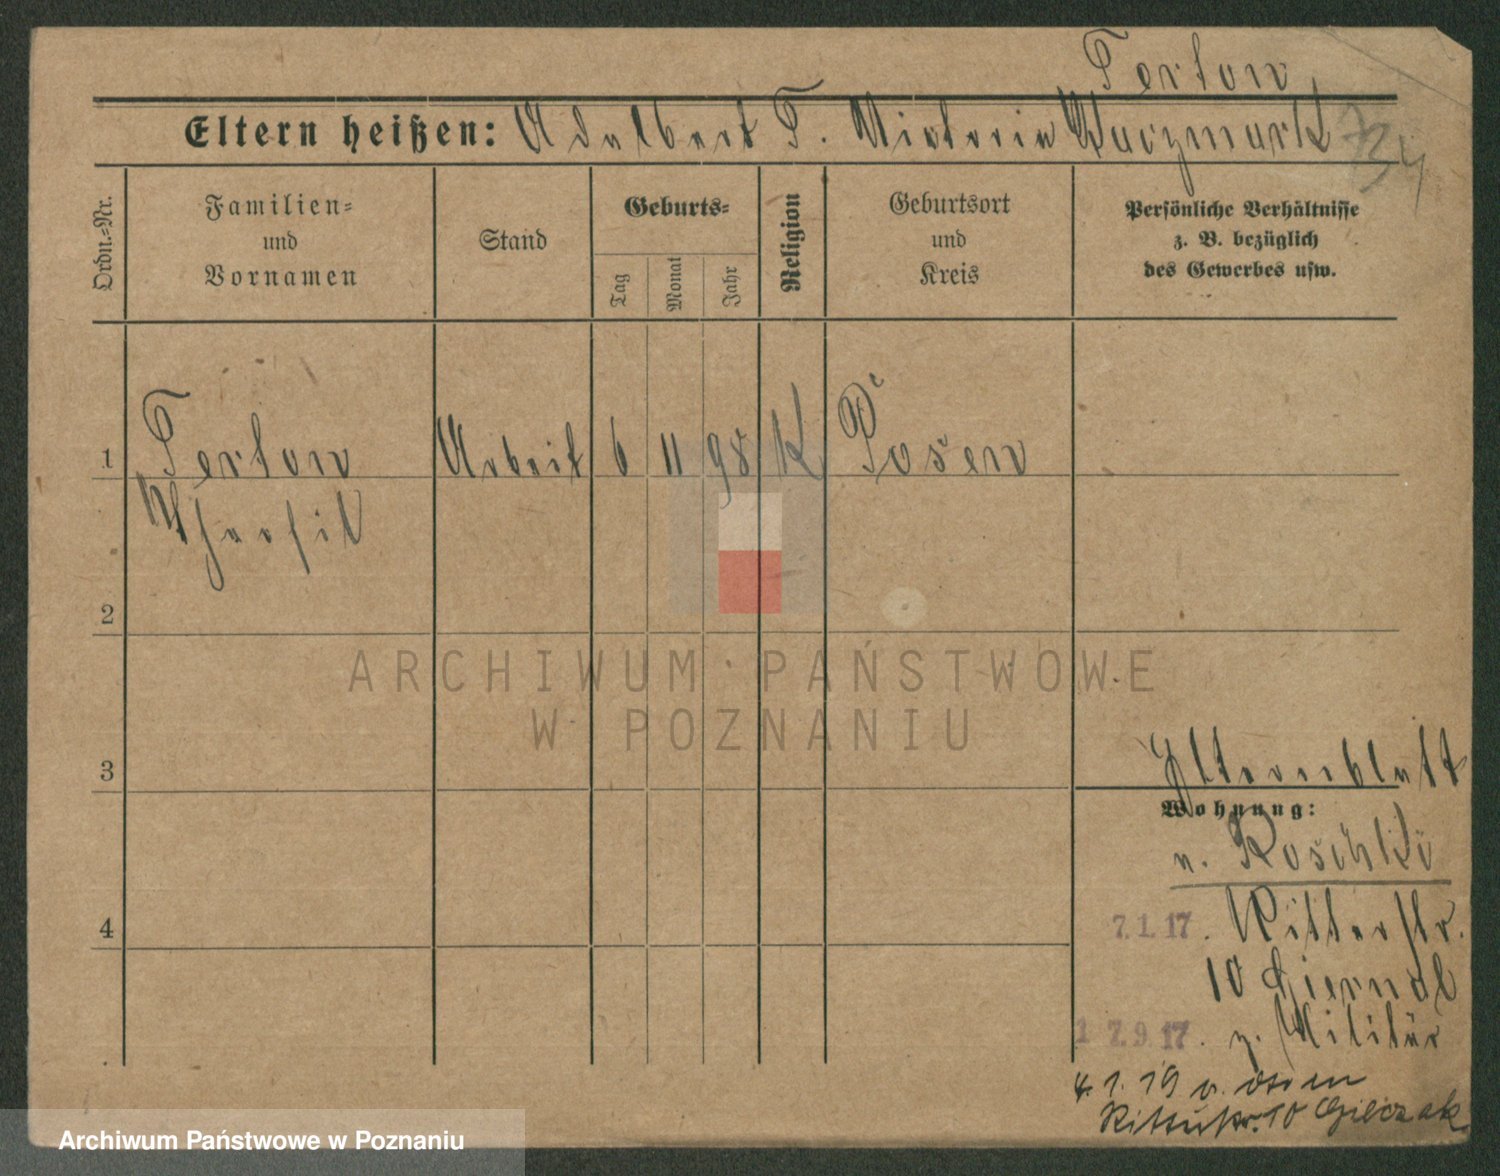 Ferton
Eltern heißen: Adalbert F. Victoria Kaczmarek
734
Ordn.-Nr.
Familien-
und
Vornamen
Stand
Geburts-
Tag
Monat
Jahr
Religion
Geburtsort
und
Kreis
Persönliche Verhältnisse
z. B. bezüglich
des Gewerbes usw.
1
Arbeit 6 11 98 K Posen
2
ARCHIWUM PAŃSTWOWE
W POZNANIU
3
Elternblatt
Wohnung:
n. Koschki
4
7.1.17. Ritterstr.
10
17.9.17. z. Militär
4.1.19 v.
Ritterstr. 10
Archiwum Państwowe w Poznaniu